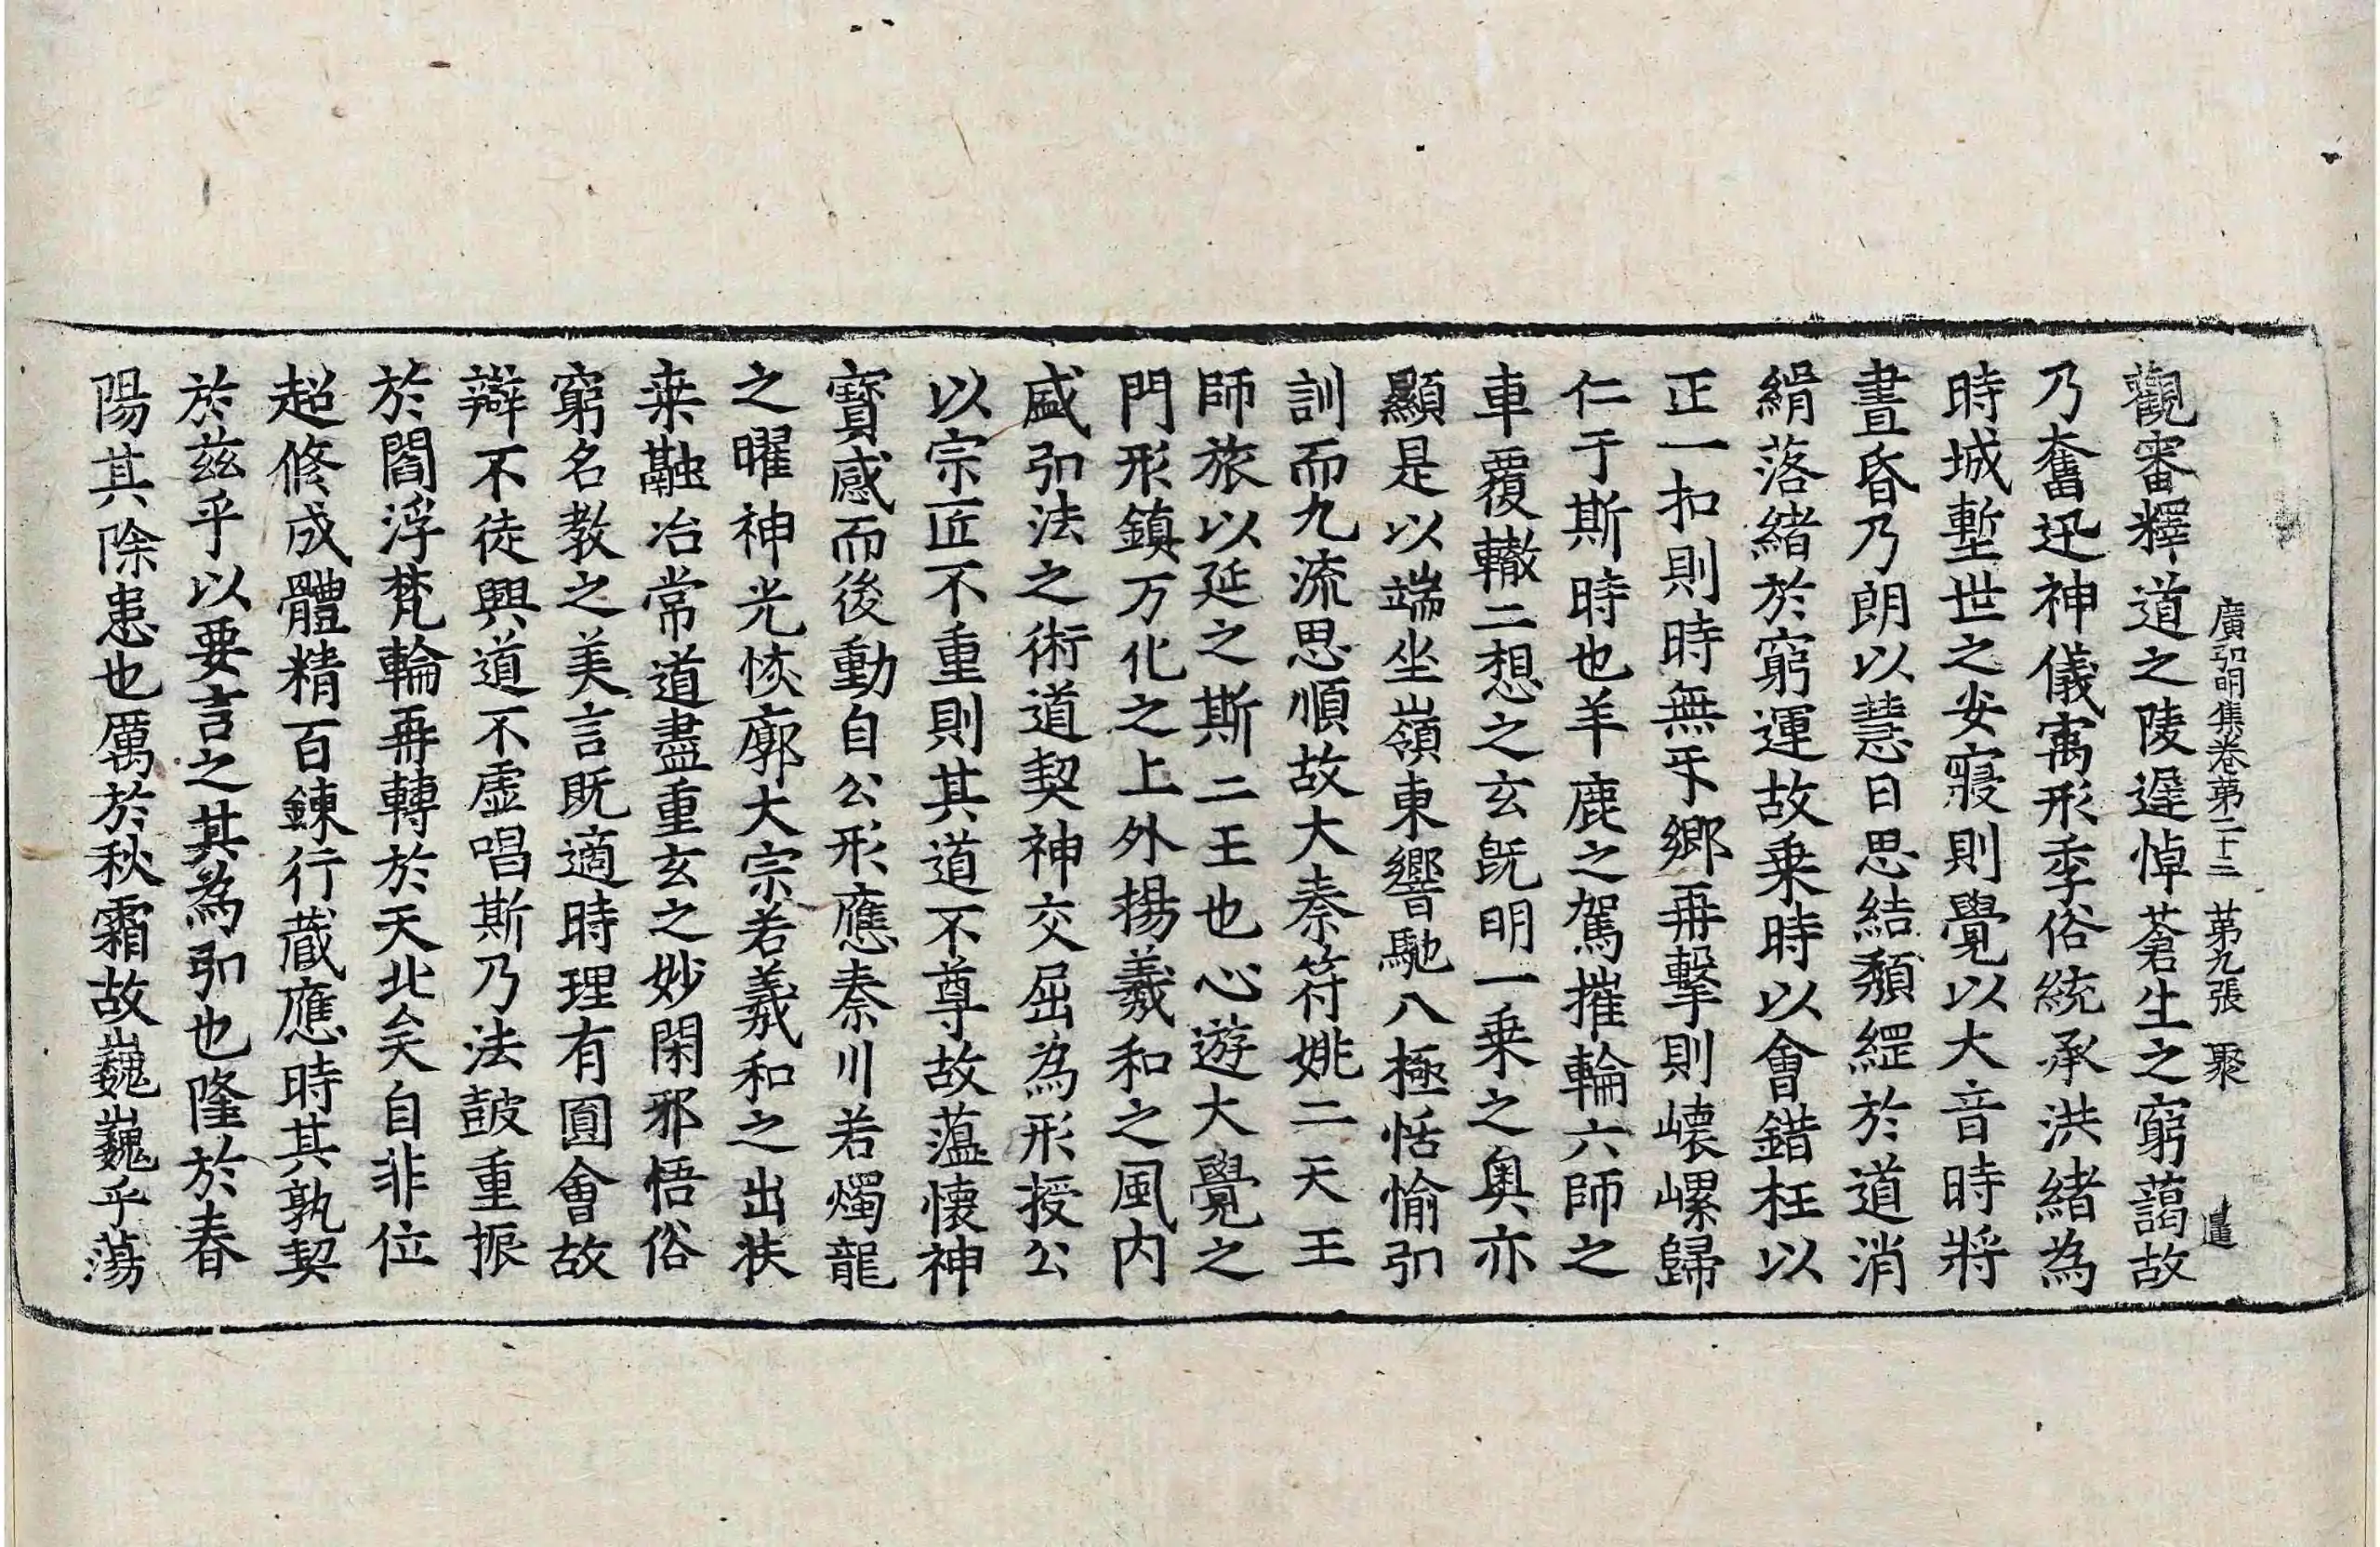 廣弘明集卷第二十三 第九張 聚
觀審釋道之陵遲悼蒼生之窮藹故
乃奮迅神儀寓形季俗統承洪緒為
時城塹世之安寢則覺以大音時將
晝昏乃朗以慧日思結頹綱於道消
緝落緒於窮運故乗時以會錯枉以
正一扣則時無互鄉再擊則㠢嵺歸
仁于斯時也羊鹿之駕摧輪六師之
車覆轍二想之玄旣明一乗之奥亦
顯是以端坐嶺東響馳八極恬愉弘
訓而九流思順故大秦符姚二天王
師旅以延之斯二王也心遊大覺之
門形鎮万化之上外揚羲和之風内
盛弘法之術道契神交屈為形授公
以宗匠不重則其道不尊故蘊懷神
寶感而後動自公形應秦川若燭龍
之曜神光恢廓大宗若羲和之出扶
桒融冶常道盡重玄之妙閑邪悟俗
窮名教之美言既適時理有圓會故
辯不徒興道不虛唱斯乃法鼓重振
於閻浮梵輪再轉於天北矣自非位
超修成體精百鍊行藏應時其孰契
於茲乎以要言之其為弘也隆於春
陽其除患也厲於秋霜故巍巍乎蕩